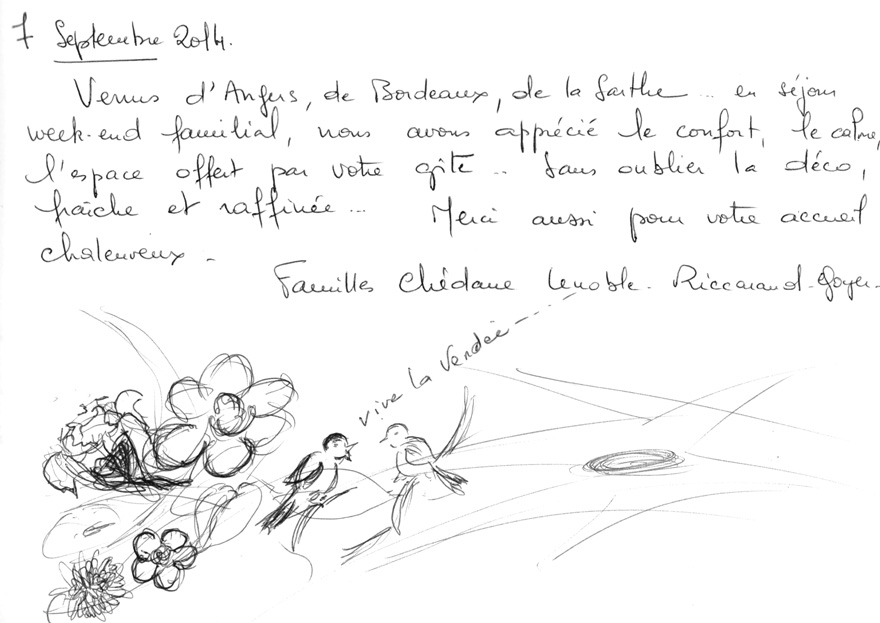 7 Septembre 2014.
Venus d'Angers, de Bordeaux, de la Sarthe ... en séjour
week-end familial, nous avons apprécié le confort, le calme,
l'espace offert par votre gîte .. Sans oublier la déco,
fraîche et raffinée ... Merci aussi pour votre accueil
chaleureux -
Familles Chédane Lenoble - Riccarand - Goyer -
vive la Vendée ----